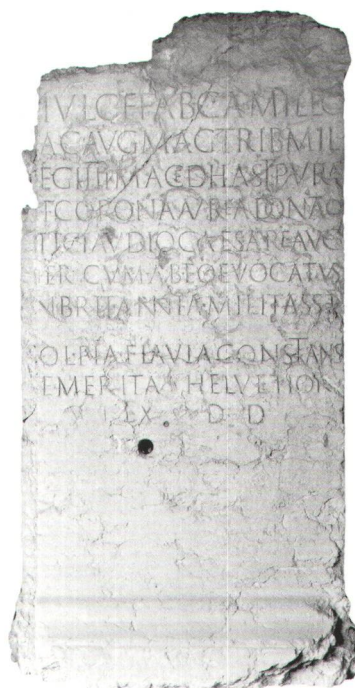 IVL C F FAB CAMILLO
AC AVG MAG TRIB MIL
EG IIII MACED HAST PVRA
ET CORONA AVREA DONATO
TI CLAVDIO CAESARE AVG
TER CVM AB EO EVOCATVS
N BRITANNIA MILITASSET
OL PIA FLAVIA CONSTANS
EMERITA HELVETIOR
EX D D